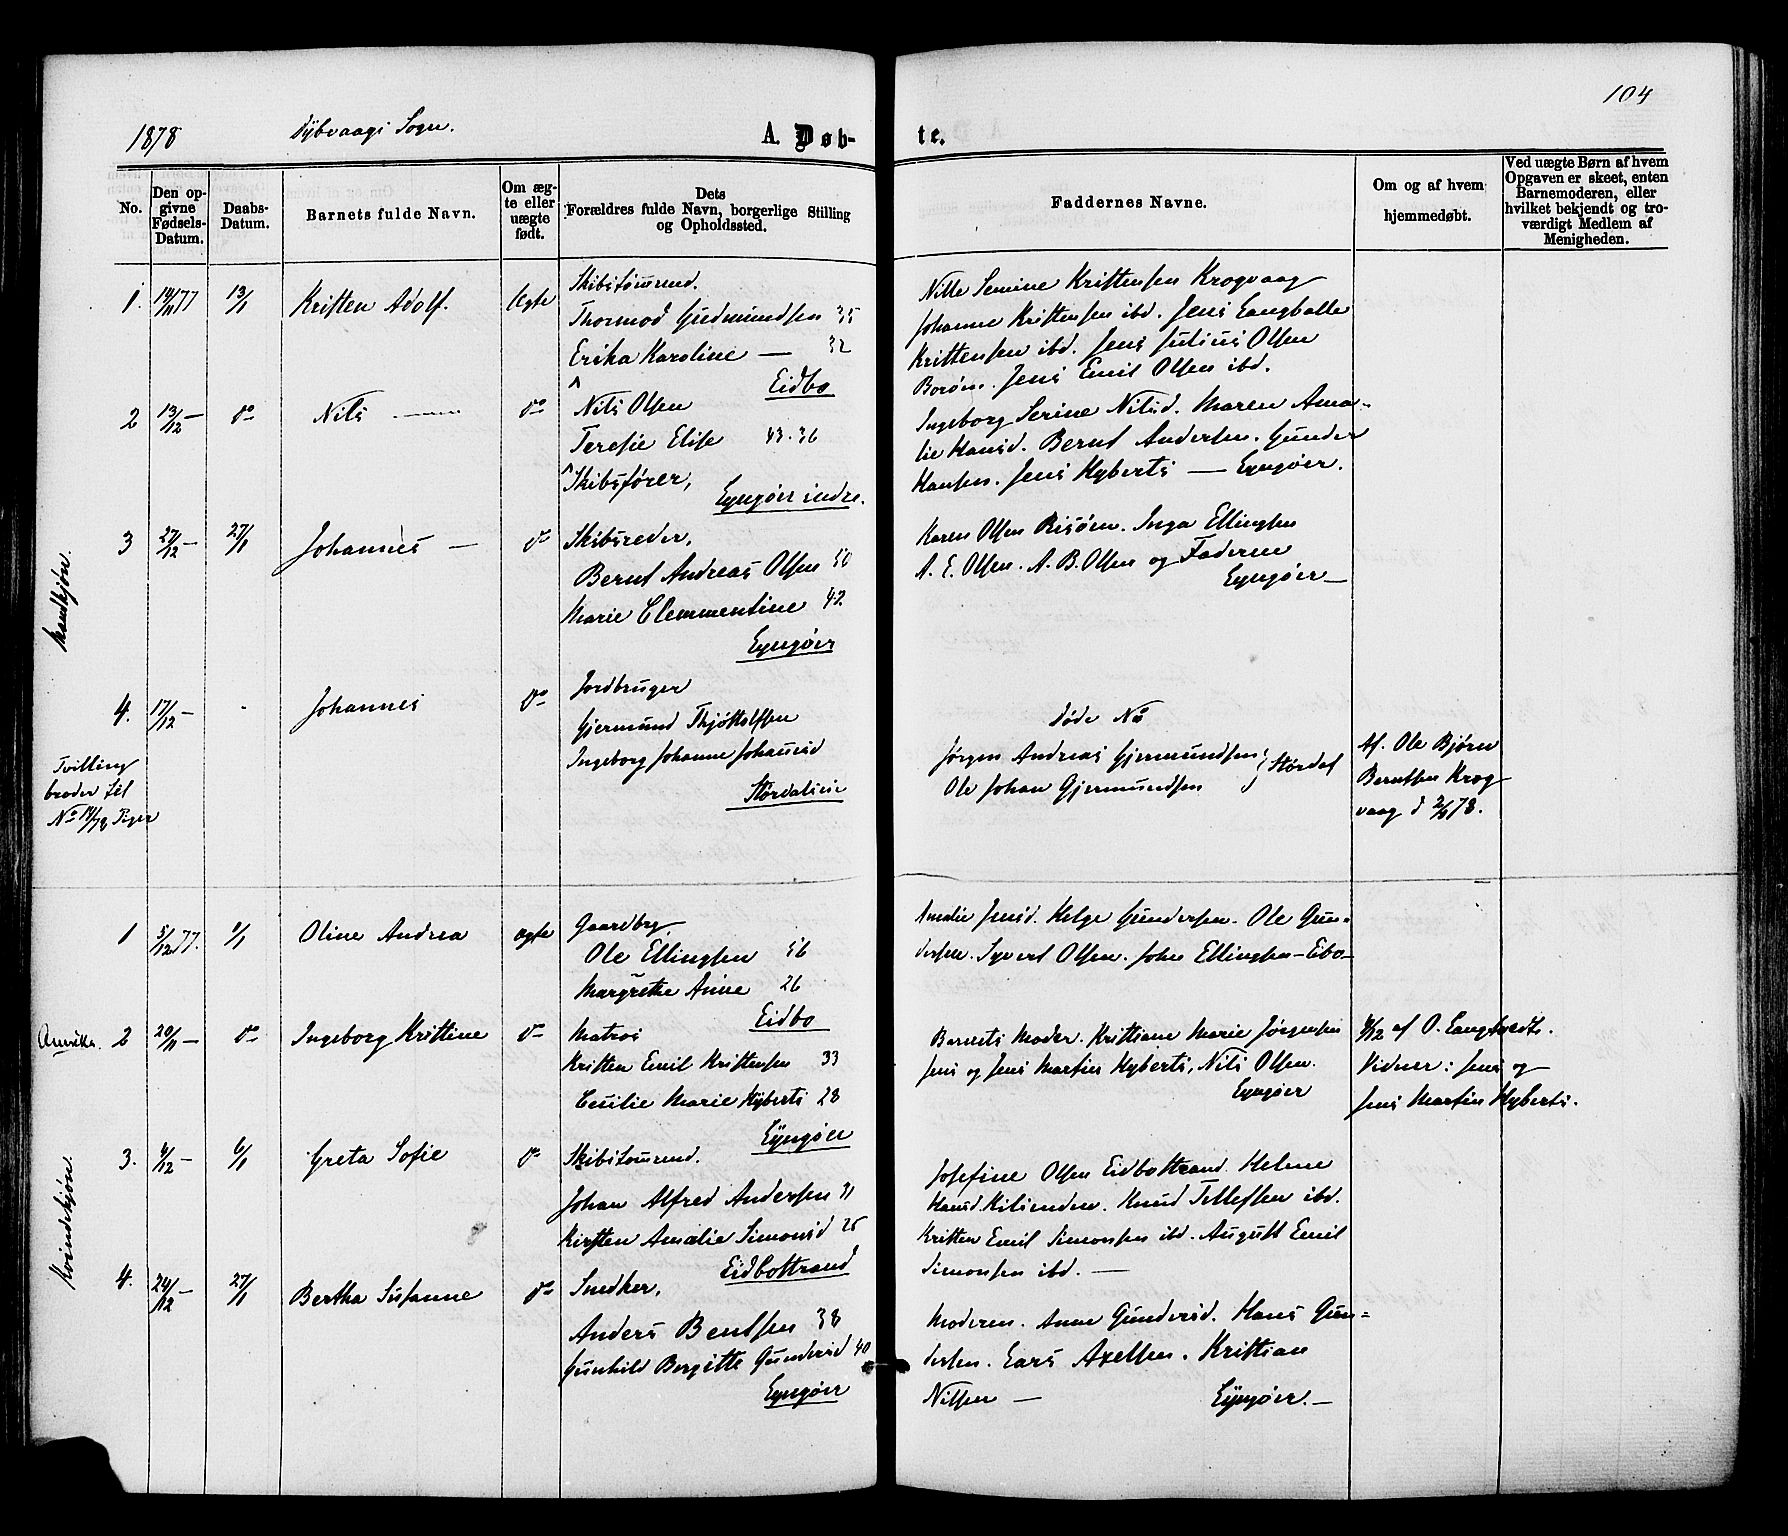 1878 Dybvaags Sogn. A. Døb-
te. 104
No.
Den op-
givne
Fødsels-
Datum.
Daabs-
Datum.
Barnets fulde Navn.
Om æg-
te eller
uægte
født.
Dets
Forældres fulde Navn, borgerlige Stilling
og Opholdssted.
Faddernes Navne.
Om og af hvem
hjemmedøbt.
Ved uægte Børn af hvem
Opgaven er skeet, enten
Barnemoderen, eller
hvilket bekjendt og tro-
værdigt Medlem af
Menigheden.
Mandkjøn.
1. 14/11 77 13/1 Kristen Adolf. Ægte
Skibstømrmd.
Thormod Gudmundsen 35
Erika Karoline — 32
Eidbo
Nille Semine Kristensen Krogvaag
Johanne Kristensen ibd. Jens Langballe
Kristensen ibd. Jens Julius Olsen
Borøen. Jens Emil Olsen ibd.
2 13/12 — do Nils — do
Nils Olsen
Teresie Elise 43. 36
Skibsfører,
Lyngøer indre.
Ingeborg Serine Nilsd. Maren Ama-
lie Hansd. Bernt Andersen. Gunder
Hansen. Jens Hyberts — Lyngøer.
3 27/12 — 27/1 Johannes — do
Skibsreder,
Bernt Andreas Olsen 50
Marie Clemmentine 42
Lyngøer
Karen Olsen Risøen. Inga Ellingsen
A. E. Olsen. A. B. Olsen og Faderen
Lyngøer —
4. 17/12 — - Johannes do
Tvilling
broder til
No 14/78 Piger
Jordbruger
Gjermund Thjøstolfsen
Ingeborg Johanne Johansd
Stordalene
Døde No
Jørgen Andreas Gjermundsen } Stordal
Ole Johan Gjermundsen
Af. Ole Bjørn
Berntsen Krog
vaag d 2/1 78.
Kvindekjøn.
1 5/12 77. 1/1 Oline Andrea ægte
Gaardbg.
Ole Ellingsen 56
Margrethe Anne 26
Eidbo
Amalie Jensd. Helge Gundersen. Ole Gun-
dersen. Syvert Olsen. John Ellingsen — Eibo—
2 20/11 — do Ingeborg Kristine do
Matros
Kristen Emil Kristensen 33
Cecilie Marie Hyberts 28
Lyngøer
Barnets Moder. Kristiane Marie Jørgensen
Jens og Jens Martin Hyberts, Nils Olsen.
Lyngøer
af O. Langtvedt.
Vidner: Jens og
Jens Martin Hyberts.
3. /12 — 6/1 Greta Sofie do
Skibstømrmd.
Johan Alfred Andersen 31
Kirsten Amalie Simonsd 25
Eidbostrand
Josefine Olsen Eidbostrand. Helene
Hansd. Kilienden. Knud Tellefsen ibd.
Kristen Emil Simonsen ibd. August Emil
Simonsen ibd. —
4. 24/12 — 27/1 Bertha Susanne do
Snedker,
Anders Bentsen 38
Gunhild Bergitte Gundersd 40
Lyngøer
Moderen. Anne Gundersd. Hans Gun-
dersen. Lars Axelsen. Kristian
Nilsen — Lyngøer. —